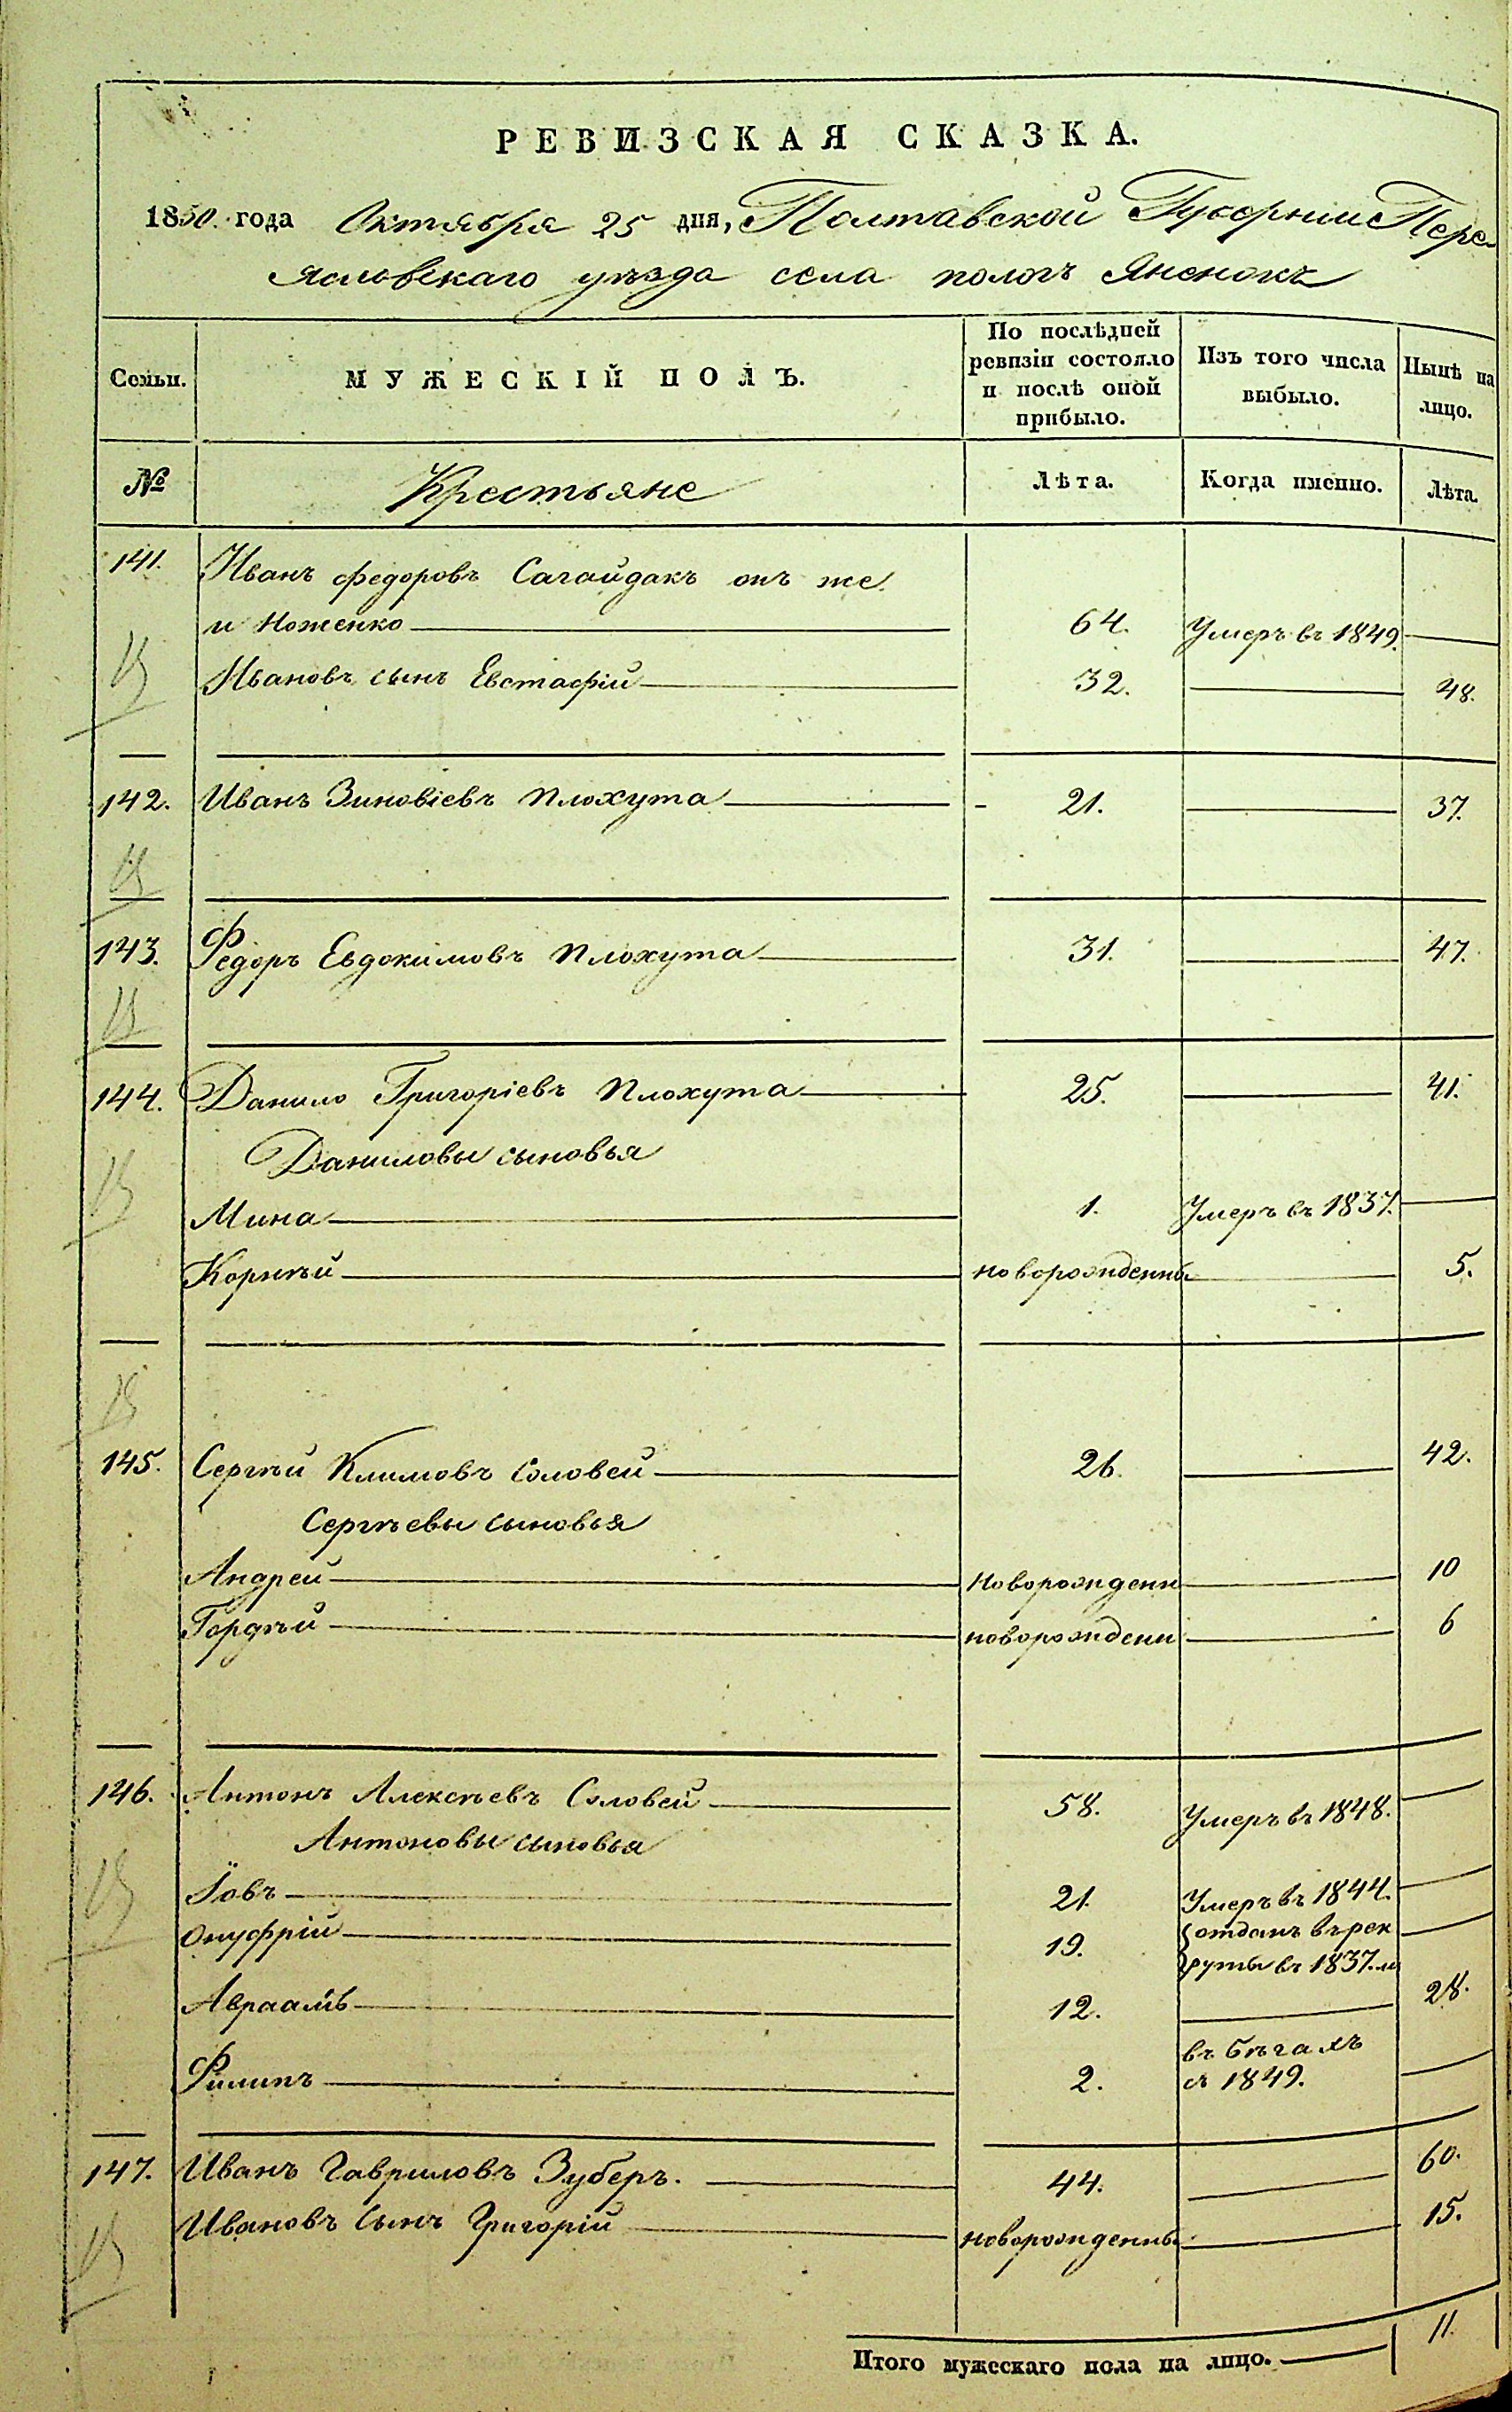 РЕВИЗСКАЯ СКАЗКА.
1850. года Октября 25 дня, Полтавской Губернии Пере
яславскаго уѣзда села пологъ Яненокъ
Семьи. МУЖЕСКІЙ ПОЛЪ. По послѣдней ревизіи состояло и послѣ оной прибыло. Изъ того числа выбыло. Нынѣ на лицо.
№ Крестьяне Лѣта. Когда именно. Лѣта.
141. Иванъ Федоровъ Сагайдакъ онъ же
и Ноженко 64. Умеръ въ 1849.
Ивановъ сынъ Евстафій 32. 48.
142. Иванъ Зиновіевъ Плохута 21. 37.
143. Федоръ Евдокимовъ Плохута 31. 47.
144. Данило Григоріевъ Плохута 25. 41.
Даниловы сыновья
Мина 1. Умеръ въ 1837.
Корнѣй новорожденны 5.
145. Сергѣй Климовъ Соловей 26. 42.
Сергѣевы сыновья
Андрей новорожденн 10
Гордѣй новорожденн 6
146. Антонъ Алексѣевъ Соловей 58. Умеръ въ 1848.
Антоновы сыновья
Іовъ 21. Умеръ въ 1844.
Онуфрій 19. отданъ въ рек
руты въ 1837.м
Авраамъ 12. 28.
Филипъ 2. въ бѣгахъ
съ 1849.
147. Иванъ Гавриловъ Зуберъ. 44. 60.
Ивановъ сынъ Григорій новорожденны 15.
Итого мужескаго пола на лицо. 11.